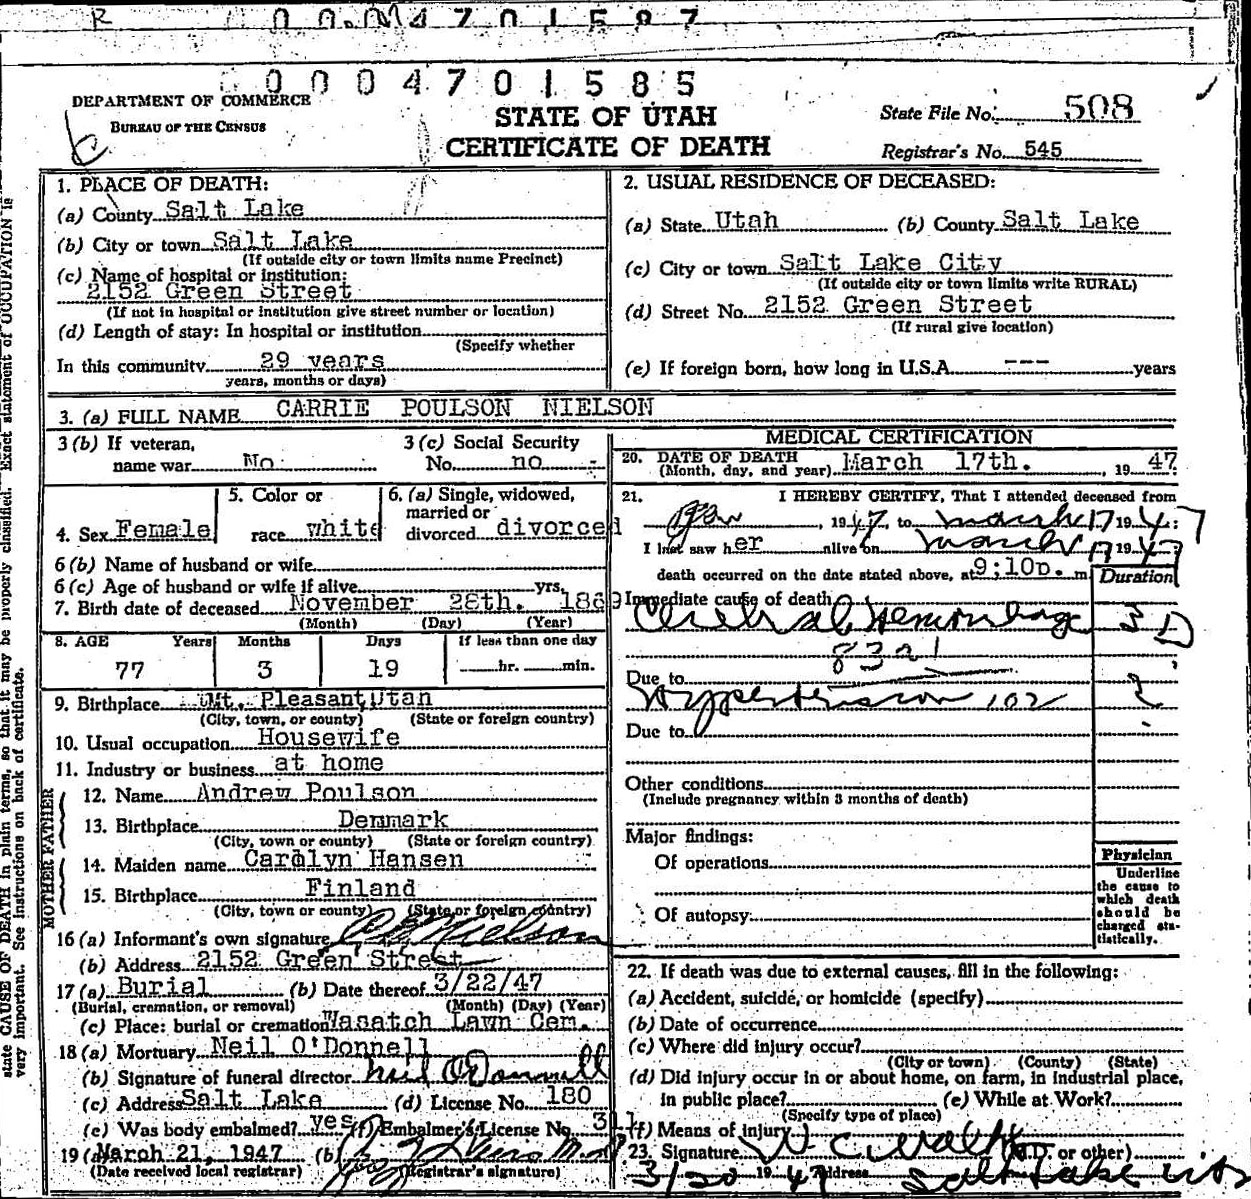 0004701587
0004701585
DEPARTMENT OF COMMERCE
BUREAU OF THE CENSUS
STATE OF UTAH
CERTIFICATE OF DEATH
State File No. 508
Registrar's No. 545
1. PLACE OF DEATH:
(a) County Salt Lake
(b) City or town Salt Lake
(If outside city or town limits name Precinct)
(c) Name of hospital or institution:
2152 Green Street
(If not in hospital or institution give street number or location)
(d) Length of stay: In hospital or institution
(Specify whether
In this community 29 years
years, months or days)
2. USUAL RESIDENCE OF DECEASED:
(a) State Utah (b) County Salt Lake
(c) City or town Salt Lake City
(If outside city or town limits write RURAL)
(d) Street No. 2152 Green Street
(If rural give location)
(e) If foreign born, how long in U.S.A. --- years
3. (a) FULL NAME CARRIE POULSON NIELSON
3 (b) If veteran, name war No
3 (c) Social Security No. no
4. Sex Female
5. Color or race white
6. (a) Single, widowed, married or divorced divorced
6 (b) Name of husband or wife
6 (c) Age of husband or wife if alive yrs.
7. Birth date of deceased November 28th. 1869
(Month) (Day) (Year)
8. AGE Years Months Days If less than one day
77 3 19 hr. min.
9. Birthplace Mt. Pleasant, Utah
(City, town, or county) (State or foreign country)
10. Usual occupation Housewife
11. Industry or business at home
FATHER
12. Name Andrew Poulson
13. Birthplace Denmark
(City, town or county) (State or foreign country)
MOTHER
14. Maiden name Carolyn Hansen
15. Birthplace Finland
(City, town or county) (State or foreign country)
16 (a) Informant's own signature Nielson
(b) Address 2152 Green Street
17 (a) Burial (b) Date thereof 3/22/47
(Burial, cremation, or removal) (Month) (Day) (Year)
(c) Place: burial or cremation Wasatch Lawn Cem.
18 (a) Mortuary Neil O'Donnell
(b) Signature of funeral director Neil O'Donnell
(c) Address Salt Lake (d) License No. 180
(e) Was body embalmed? yes (f) Embalmer's License No.
19 (a) March 21, 1947 (b)
(Date received local registrar) (Registrar's signature)
MEDICAL CERTIFICATION
20. DATE OF DEATH
(Month, day, and year) March 17th. , 19 47
21. I HEREBY CERTIFY, That I attended deceased from
Jan , 1947, to March 17 1947
I last saw her alive on March 17 1947
death occurred on the date stated above, at 9:10p. m.
Duration
Immediate cause of death
Cerebral Hemorrhage 3 D
Due to
Hypertension 102 ?
Due to
Other conditions
(Include pregnancy within 3 months of death)
Major findings:
Of operations
Of autopsy
Physician
Underline
the cause to
which death
should be
charged sta-
tistically.
22. If death was due to external causes, fill in the following:
(a) Accident, suicide, or homicide (specify)
(b) Date of occurrence
(c) Where did injury occur?
(City or town) (County) (State)
(d) Did injury occur in or about home, on farm, in industrial place,
in public place? (e) While at Work?
(Specify type of place)
(f) Means of injury
23. Signature (M.D. or other)
3/20 1947 Address Salt Lake City
state CAUSE OF DEATH in plain terms, so that it may be properly classified. Exact statement of OCCUPATION is
very important. See instructions on back of certificate.